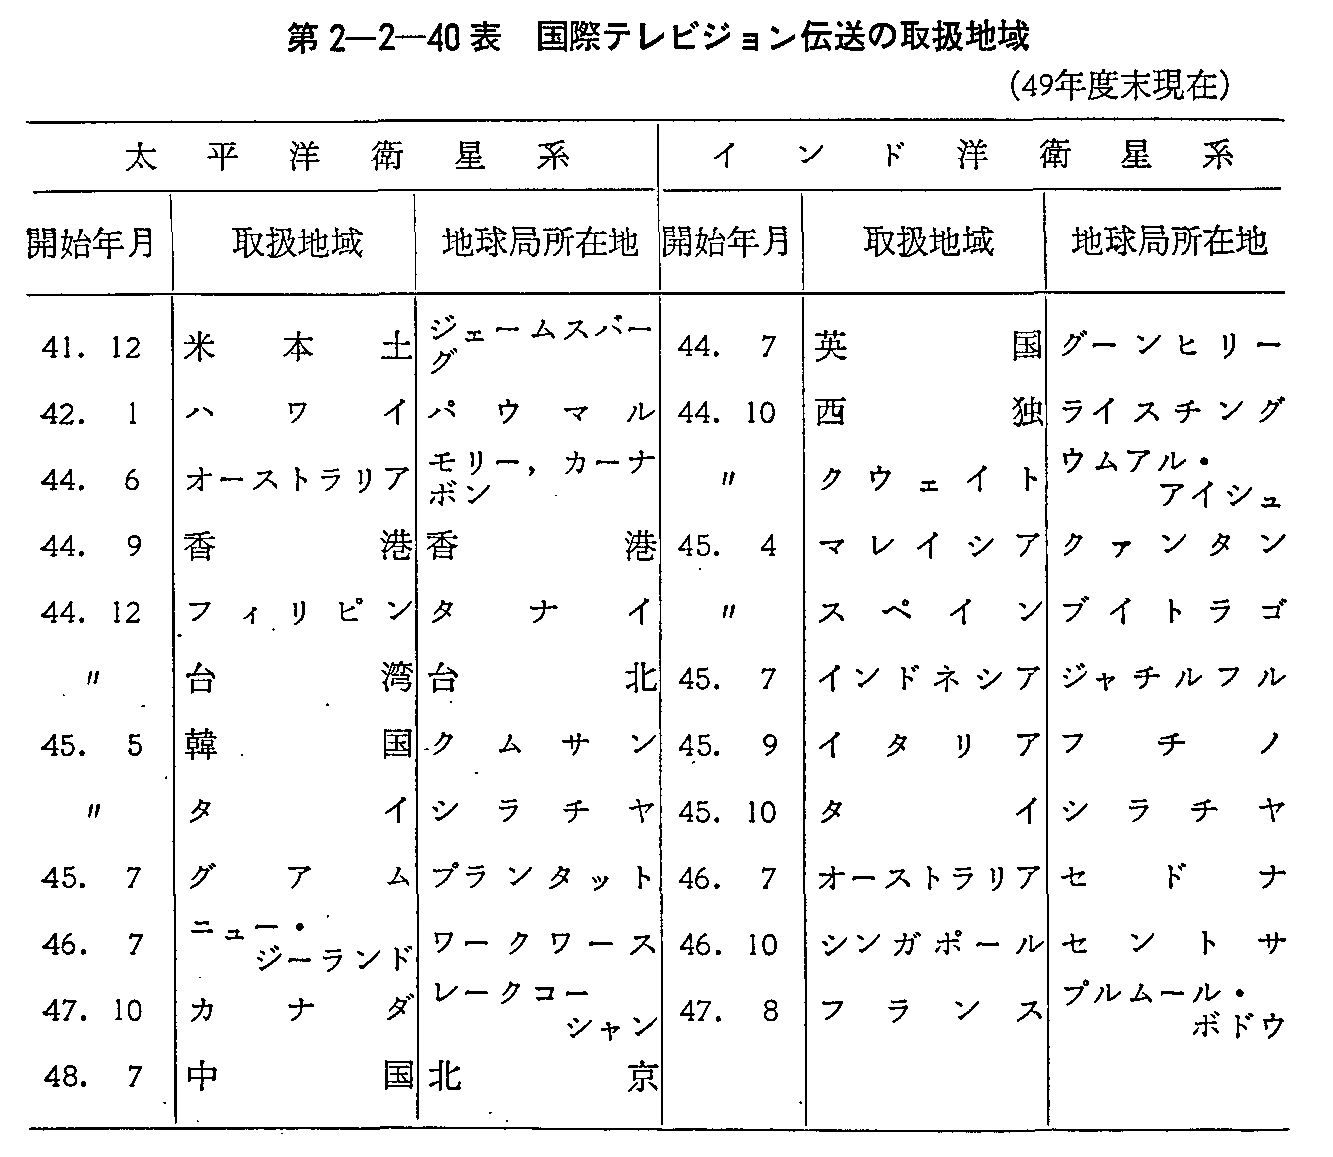 第2―2―40表 国際テレビジョン伝送の取扱地域
(49年度末現在)
太平洋衛星系 インド洋衛星系
開始年月 取扱地域 地球局所在地 開始年月 取扱地域 地球局所在地
41. 12 米本土 ジェームスバーグ 44. 7 英国 グーンヒリー
42. 1 ハワイ パウマル 44. 10 西独 ライスチング
44. 6 オーストラリア モリー，カーナボン 〃 クウェイト ウムアル・アイシュ
44. 9 香港 香港 45. 4 マレイシア クァンタン
44. 12 フィリピン タナイ 〃 スペイン ブイトラゴ
〃 台湾 台北 45. 7 インドネシア ジャチルフル
45. 5 韓国 クムサン 45. 9 イタリア フチノ
〃 タイ シラチヤ 45. 10 タイ シラチヤ
45. 7 グアム プランタット 46. 7 オーストラリア セドナ
46. 7 ニュー・ジーランド ワークワース 46. 10 シンガポール セントサ
47. 10 カナダ レークコーシャン 47. 8 フランス プルムール・ボドウ
48. 7 中国 北京